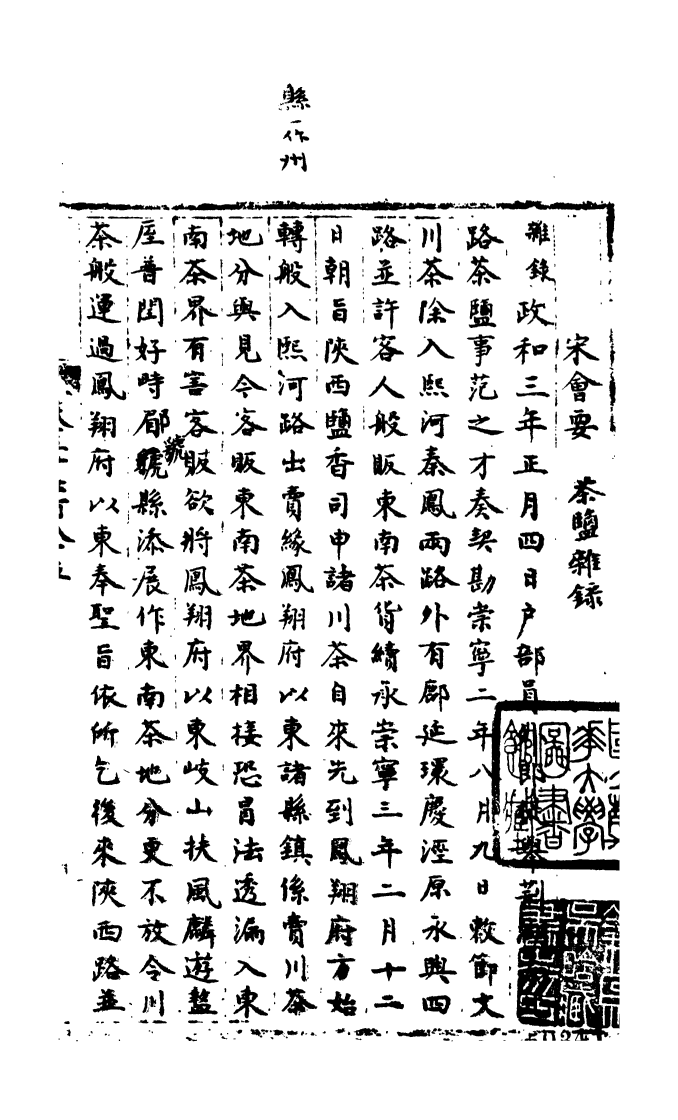 縣一作州
宋會要 茶鹽雜錄
雜錄政和三年正月四日户部員
路茶鹽事范之才奏契勘崇寧二年八月九日敕節文
川茶除入熙河秦鳳兩路外有鄜延環慶涇原永興四
路並許客人般販東南茶貨續承崇寧三年二月十二
日朝旨陝西鹽香司申諸川茶自來先到鳳翔府方始
轉般入熙河路出賣緣鳳翔府以東諸縣鎮係賣川茶
地分與見今客販東南茶地界相接恐冒法透漏入東
南茶界有害客販欲將鳳翔府以東岐山扶風麟遊盩
厔普閏好時郿虢縣添展作東南茶地分更不放令川
茶般運過鳳翔府以東奉聖旨依所乞後來陝西路並